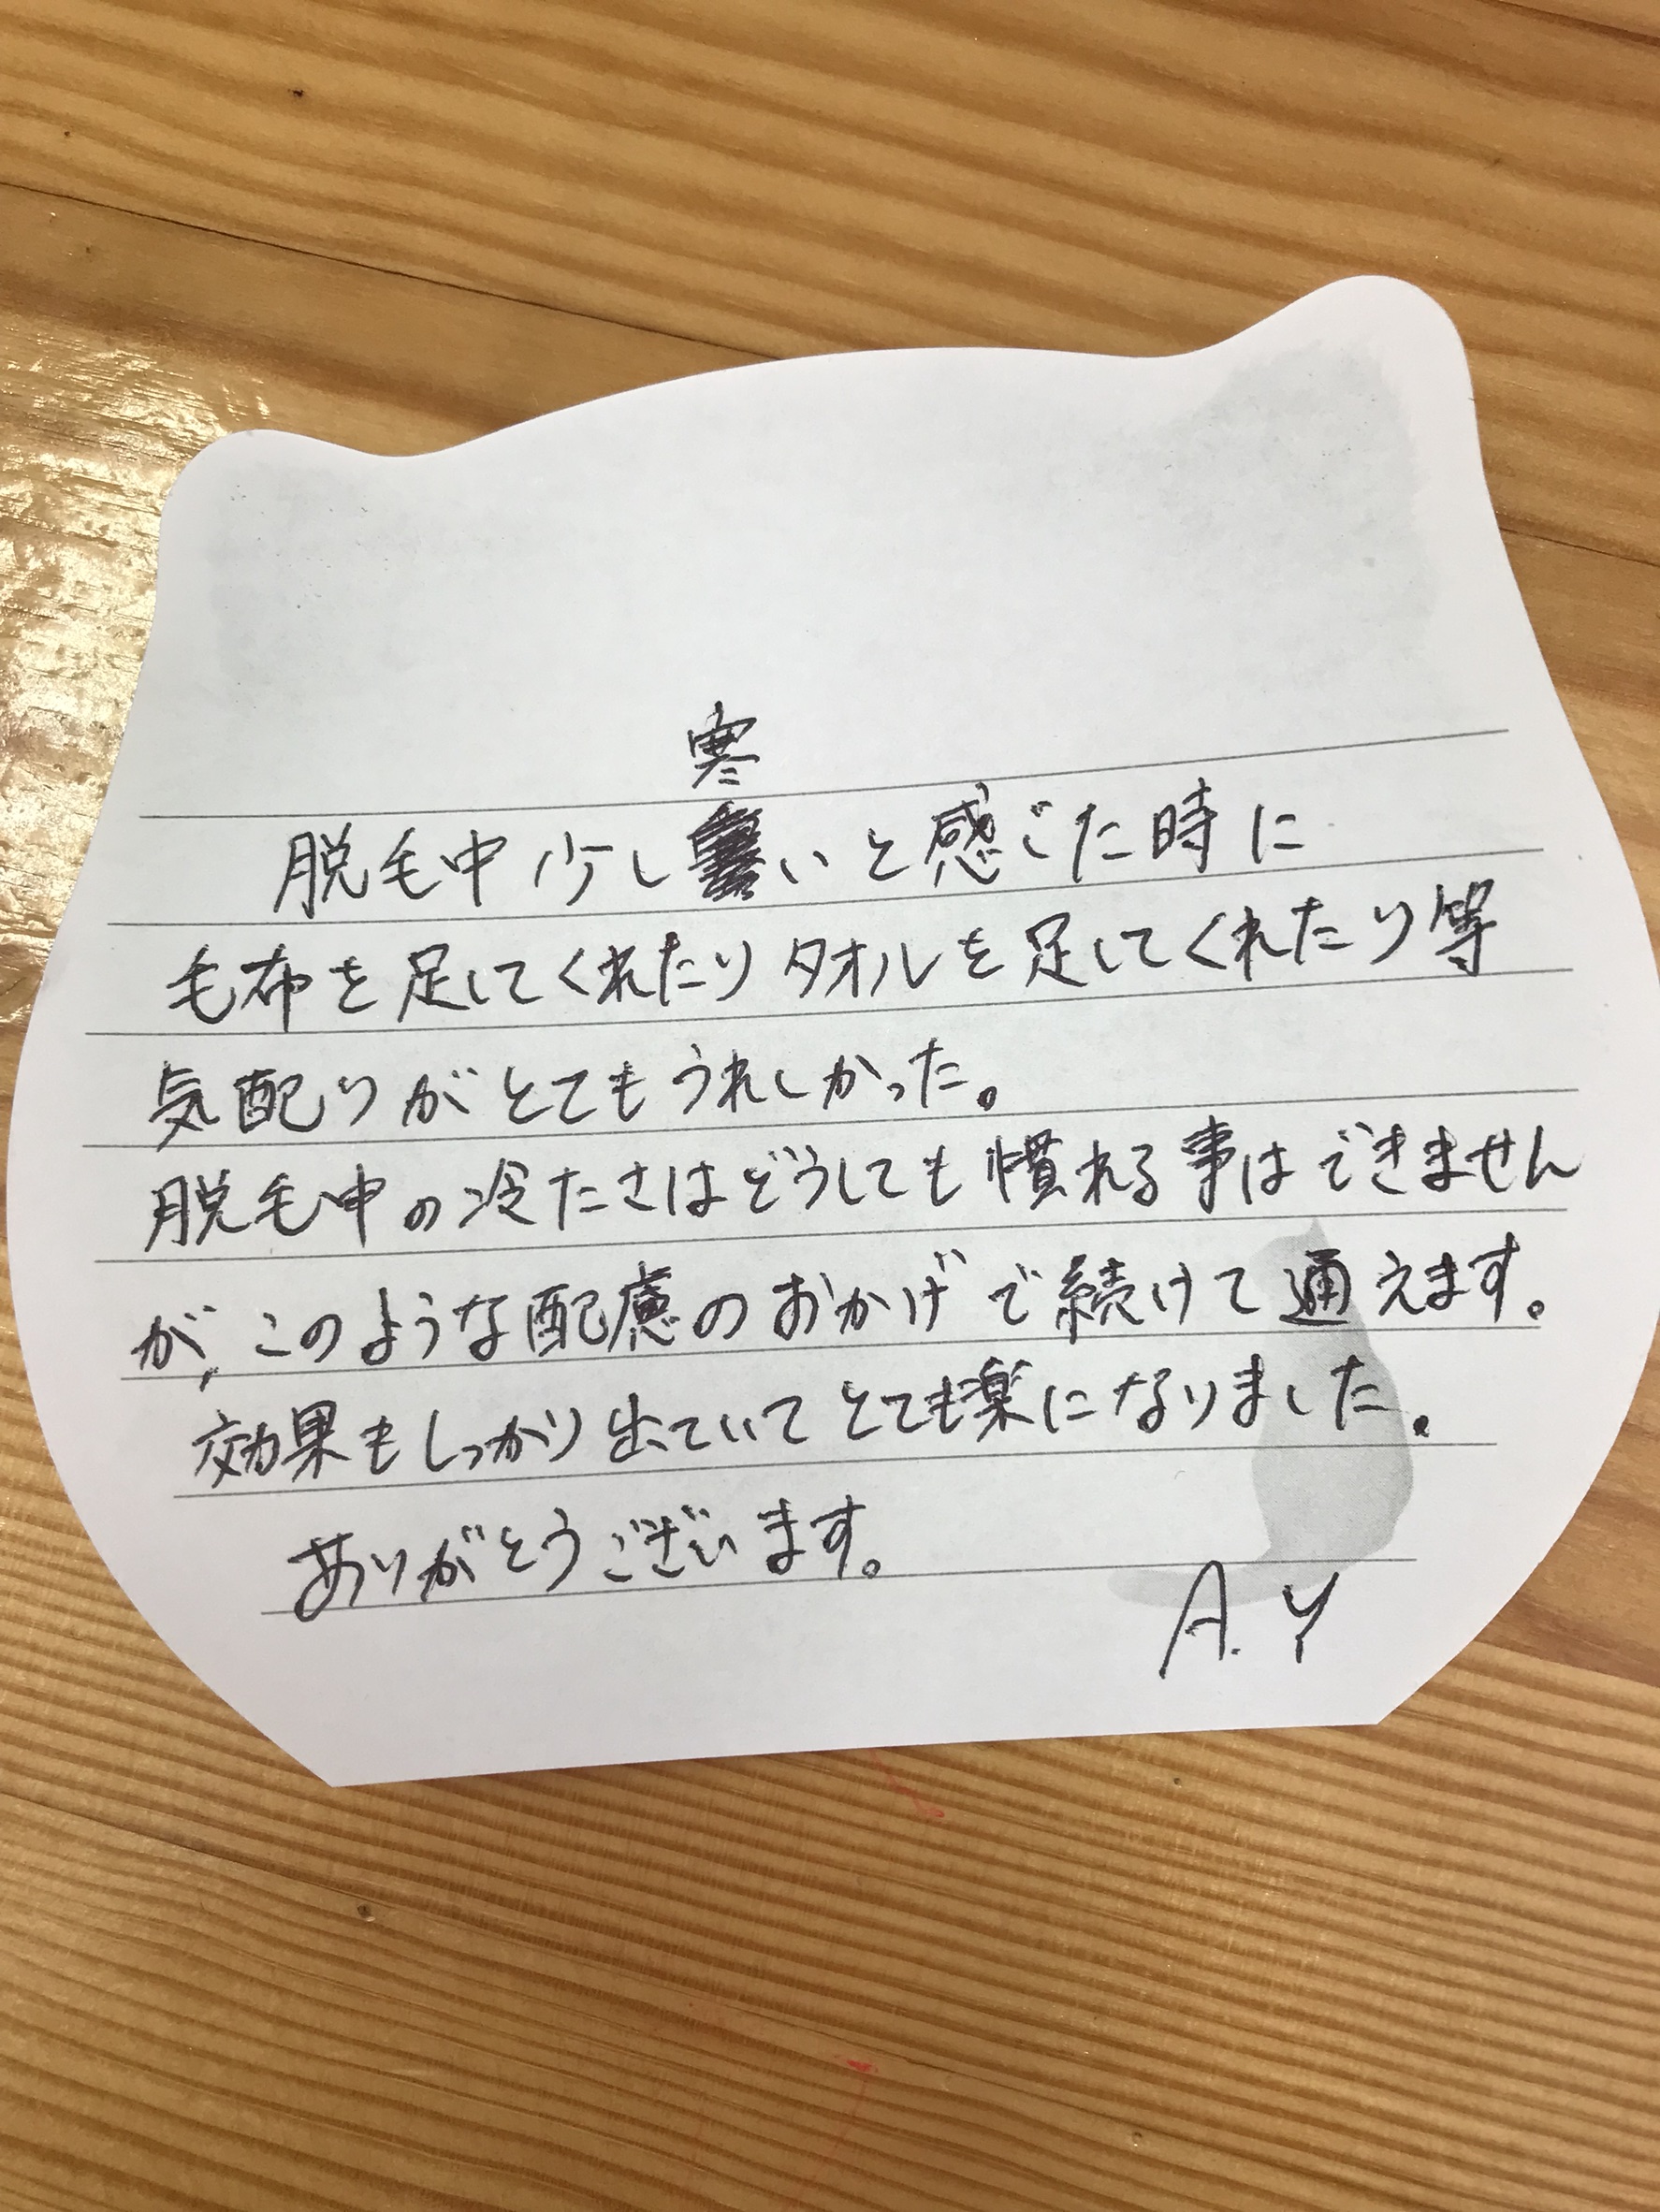 脱毛中少し寒いと感じた時に
毛布を足してくれたりタオルを足してくれたり等
気配りがとてもうれしかった。
脱毛中の冷たさはどうしても慣れる事はできません
が、このような配慮のおかげで続けて通えます。
効果もしっかり出ていてとても楽になりました。
ありがとうございます。
A.Y